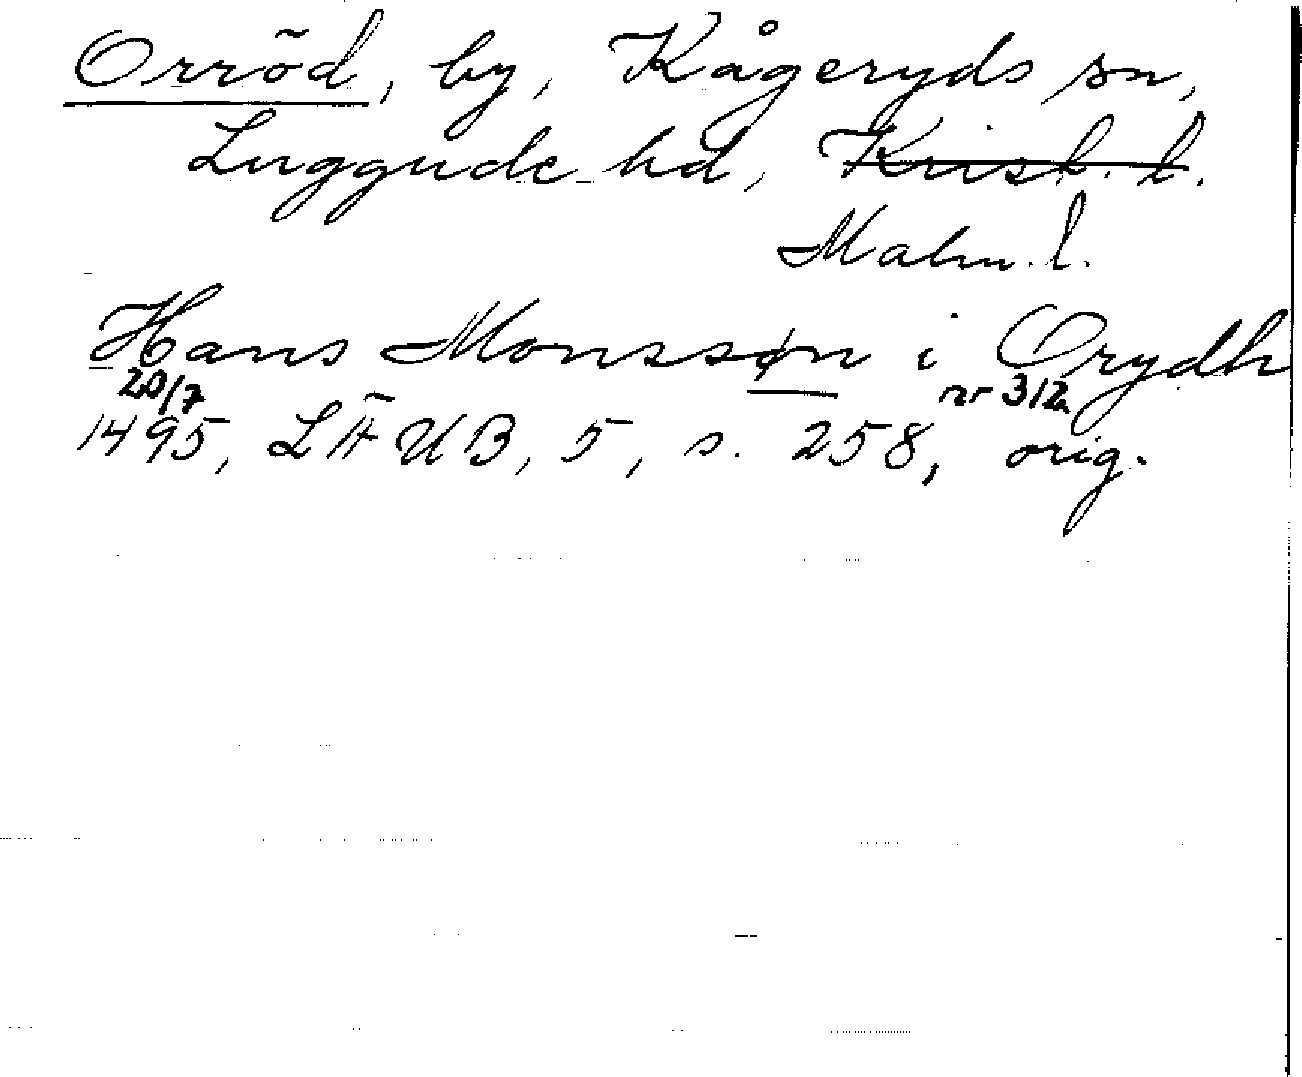 Orröd, by, Kågeryds sn,
Luggude hd, Krist. l.
Malm. l.
Hans Monssøn i Orydh
20/7 nr 312
1495, LÄUB, 5, s. 258, orig.